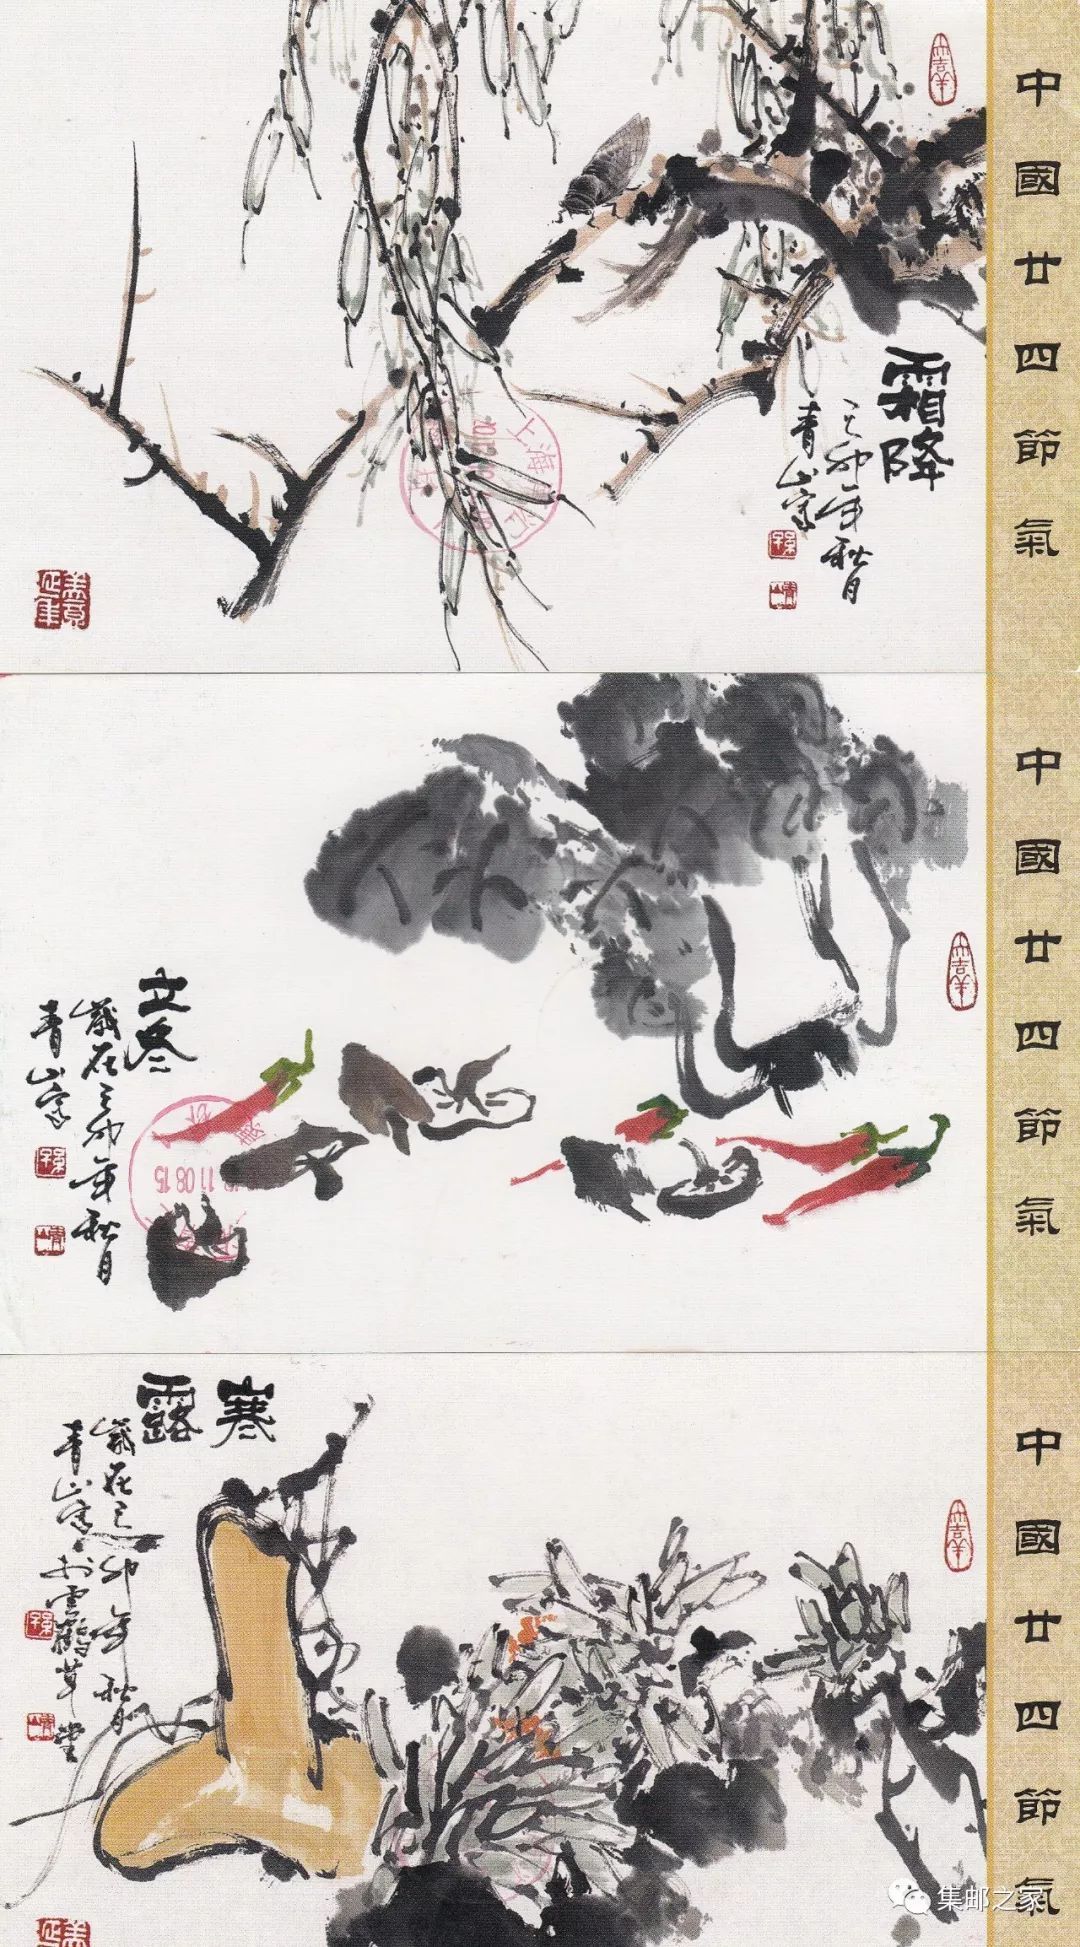 中國廿四節氣
霜降
己卯年秋月
青山寫
大吉羊
上海
中國廿四節氣
立冬
歲在己卯年秋月
青山寫
大吉羊
11.08.15
中國廿四節氣
寒露
歲在己卯年秋月
青山寫於雲鶴草堂
大吉羊
集邮之家